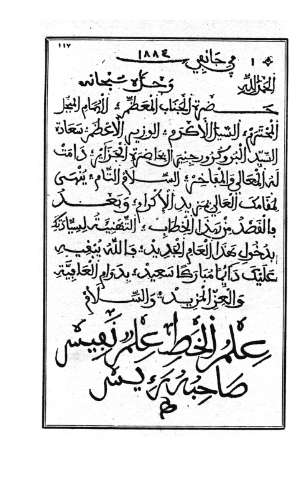 ١١٧
١ في جانفي ١٨٨٤
الحمد لله وحده سبحانه
حضرة الجناب المعظم، الهمام المبجل
المحترم، السيد الأكرم، الوزير الأعظم، سعادة
السيد دامت
له المعالي والمفاخر، السلام التام، يغشى
مقامك العالي بمزيد الإكرام، وبعد
فالقصد من هذا الخطاب، التهنية لسيادتك
بدخول هذا العام الجديد، فالله يبقيه
عليك دايما مباركا سعيد، بدوام العافية
والعز المزيد، والسلام
علم الخط علم نفيس
صاحبه رييس